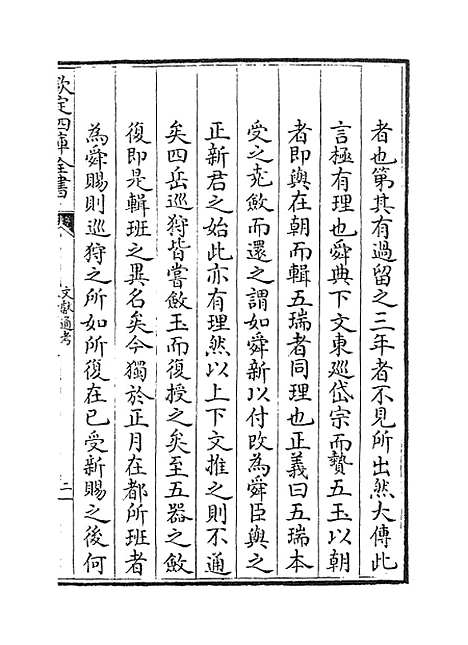 者也第其有過留之三年者不見所出然大傳此
言極有理也舜典下文東巡岱宗而贄五玉以朝
者即與在朝而輯五瑞者同理也正義曰五瑞本
受之堯斂而還之謂如舜新以付改為舜臣與之
正新君之始此亦有理然以上下文推之則不通
矣四岳巡狩皆嘗斂玉而復授之矣至五器之斂
復即是輯班之異名矣今獨於正月在都所班者
為舜賜則巡狩之所如所復在已受新賜之後何
欽定四庫全書
文獻通考
二